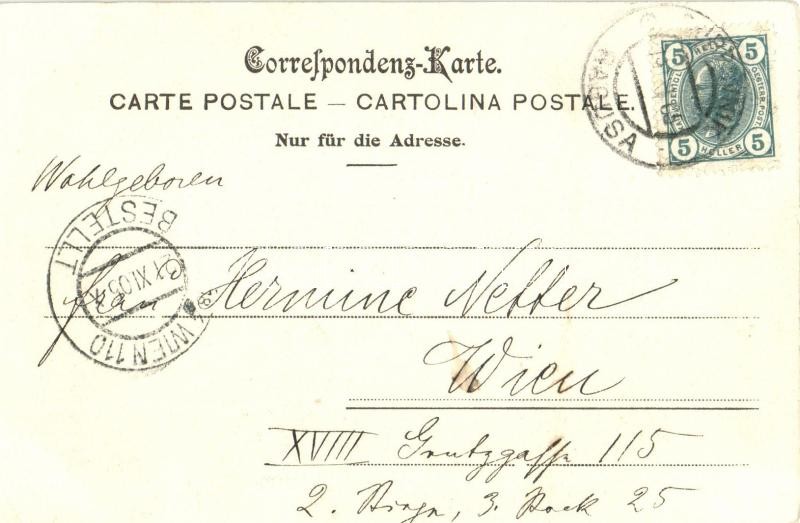 Correspondenz-Karte.
CARTE POSTALE — CARTOLINA POSTALE.
Nur für die Adresse.
5 HELLER 5
OESTERR. POST.
5 HELLER 5
RAGUSA
Wohlgeboren
BESTELLT
XI.05
WIEN 110
Frau Hermine Netter
Wien
XVIII 115
2. Stiege, 3. Stock 25